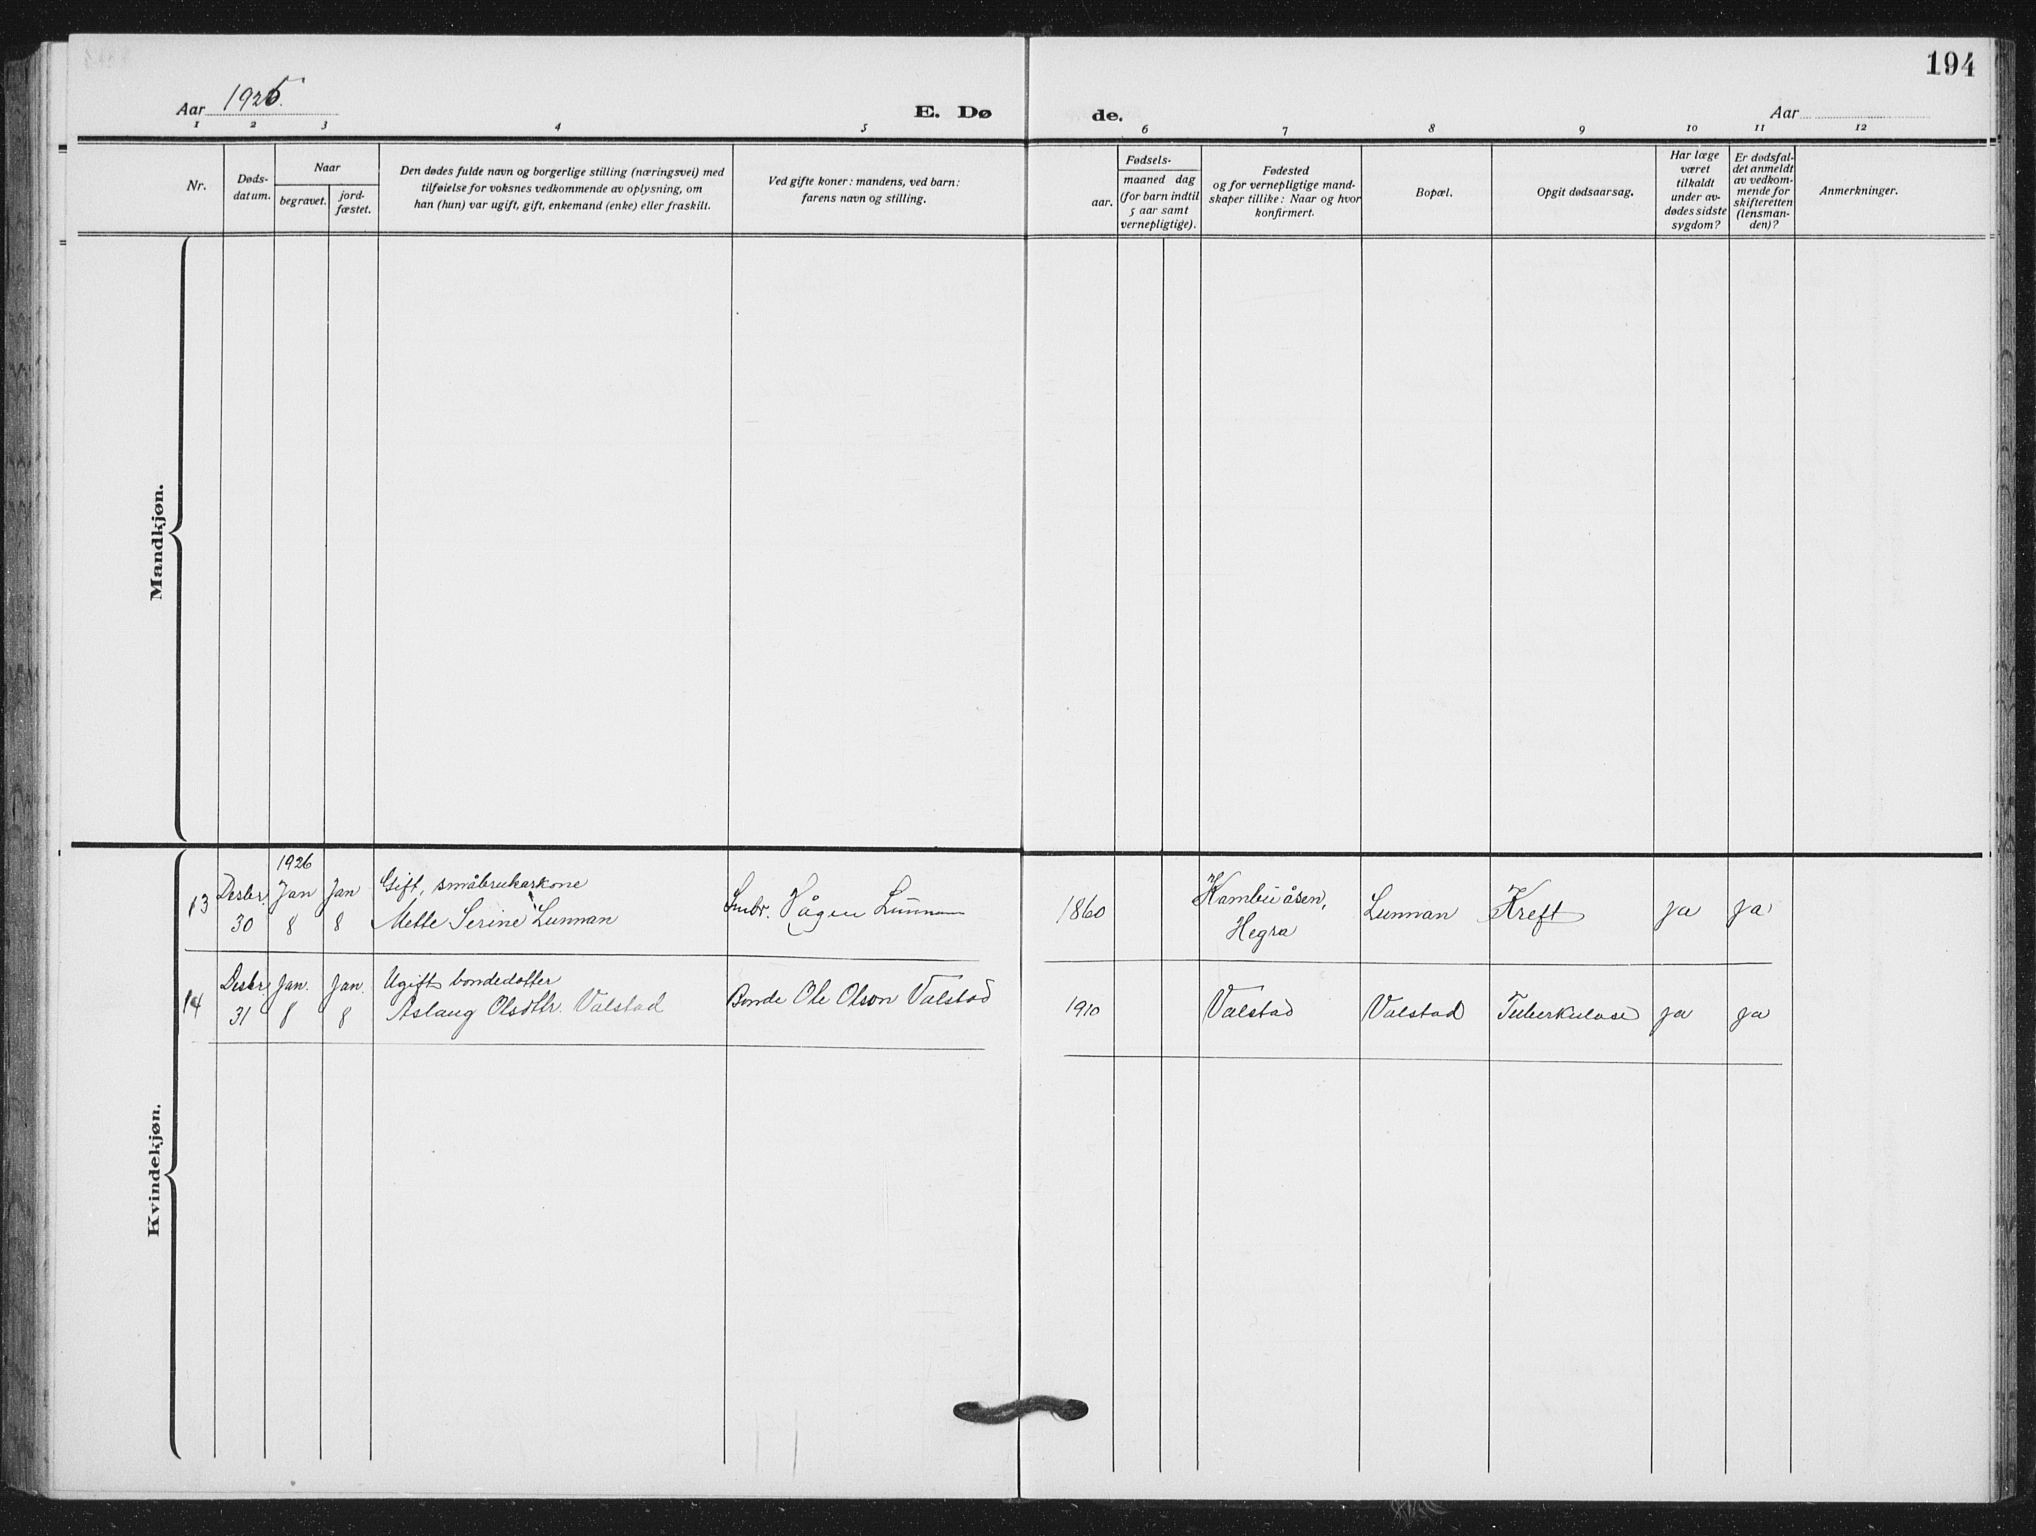 194
Aar 1925.
E. Dø
de.
Aar
1 2 3 4 5 6 7 8 9 10 11 12
Nr.
Døds-
datum.
Naar
begravet.
jord-
fæstet.
Den dødes fulde navn og borgerlige stilling (næringsvei) med
tilføielse for voksnes vedkommende av oplysning, om
han (hun) var ugift, gift, enkemand (enke) eller fraskilt.
Ved gifte koner: mandens, ved barn:
farens navn og stilling.
Fødsels-
aar.
maaned dag
(for barn indtil
5 aar samt
vernepligtige).
Fødested
og for vernepligtige mand-
skaper tillike: Naar og hvor
konfirmert.
Bopæl.
Opgit dødsaarsag.
Har læge
været
tilkaldt
under av-
dødes sidste
sygdom?
Er dødsfal-
det anmeldt
av vedkom-
mende for
skifteretten
(lensman-
den)?
Anmerkninger.
Mandkjøn.
Kvindekjøn.
1926
13 Desbr. Jan Jan Gift, småbrukarkone
30 8 8 Mette Serine Lunnan
Smbr. Vågen Lunnan
1860
Kambuåsen,
Hegra
Lunnan Kreft ja ja
14 Desbr. Jan. Jan. Ugift bondedotter
31 8 8 Aslaug Olsdtr. Valstad
Bonde Ole Olson Valstad
1910 Valstad Valstad Tuberkulose ja ja